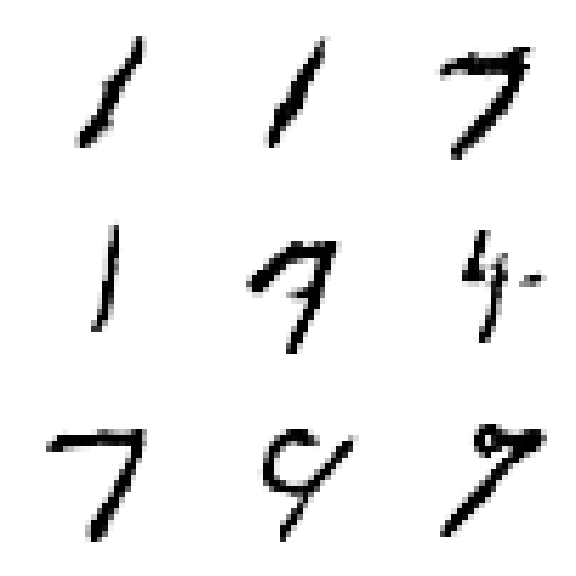 1 1 7
1 7 4
7 9 9